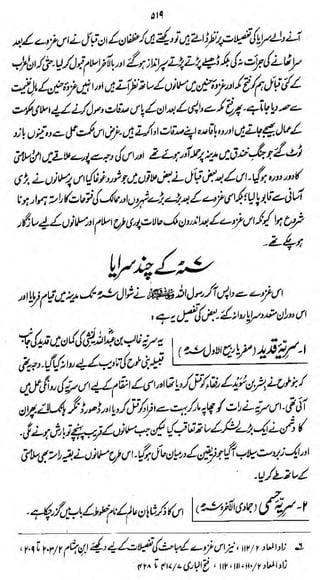 ۵۱۹
آنے والے سرایا کی تفصیلات پر نظر ڈالتے ہیں تو دیکھتے ہیں کہ غطفان کے ان قبائل نے اس غزوے کے بعد
سر اٹھانے کی جرأت نہ کی بلکہ ڈھیلے پڑتے پڑتے سپر انداز ہو گئے اور بالآخر اسلام قبول کر لیا۔ حتیٰ کہ ان اعراب
کے کئی قبائل ہم کو فتح مکہ اور غزوہ حنین میں مسلمانوں کے ساتھ نظر آتے ہیں اور انہیں غزوہ حنین کے مال غنیمت سے
حصہ دیا جاتا ہے۔ پھر فتح مکہ سے واپسی کے بعد ان کے پاس صدقات وصول کرنے کے لیے اسلامی حکومت
کے عمال بھیجے جاتے ہیں اور وہ باقاعدہ اپنے صدقات ادا کرتے ہیں۔ غرض اس حکمت عملی سے وہ تینوں بازو
ٹوٹ گئے جو جنگ خندق میں مدینہ پر حملہ آور ہوئے تھے اور اس کی وجہ سے پورے علاقے میں امن و سلامتی
کا دور دورہ ہو گیا۔ اس کے بعد بعض قبائل نے بعض علاقوں میں جو شور و غوغا کیا اس پر مسلمانوں نے بڑی
آسانی سے قابو پا لیا بلکہ اسی غزوے کے بعد بڑے بڑے شہروں اور ممالک کی فتوحات کا راستہ ہموار ہونا
شروع ہوا کیونکہ اس غزوے کے بعد اندرون ملک حالات پوری طرح اسلام اور مسلمانوں کے لیے سازگار
ہو چکے تھے۔
۷ھ کے چند سرایا
اس غزوے سے واپس آ کر رسول اللہ ﷺ نے شوال ۷ھ تک مدینہ میں قیام فرمایا اور
اس دوران متعدد سرایا روانہ کئے بعض کی تفصیل یہ ہے:
۱۔ سریۂ قدید (صفر یا ربیع الاول ۷ھ) یہ سریہ غالب بن عبداللہ لیثی کی کمان میں قدید کی جانب
قبیلہ بنی ملوح کی تادیب کے لیے روانہ کیا گیا۔ وجہ یہ تھی
کہ بنو ملوح نے بشر بن سوید کے رفقاء کو قتل کر دیا تھا اور اسی کے انتقام کے لیے اس سریہ کی روانگی عمل میں
آئی تھی۔ اس سریہ نے رات کو چھاپہ مار کر بہت سے افراد کو قتل کر دیا اور ڈھور ڈنگر ہانک لائے۔ پھر ان
کا دشمن نے ایک بڑے لشکر کے ساتھ تعاقب کیا لیکن جب مسلمانوں کے قریب پہنچے تو بارش ہونے لگی۔
اور ایک زبردست سیلاب آ گیا جو فریقین کے درمیان حائل ہو گیا۔ اس طرح مسلمانوں نے بقیہ راستہ بھی سلامتی
کے ساتھ طے کر لیا۔
۲۔ سریۂ حسمی (جمادی الآخرہ ۷ھ) اس کا ذکر شاہان عالم کے نام خطوط کے باب میں گزر چکا ہے۔
زاد المعاد ۲/۱۱۲، نیز اس غزوے کے مباحث کی تفصیلات کے لیے دیکھئے ابن ہشام ۲/۲۰۳ تا ۲۰۹
زاد المعاد ۲/۱۱۰، ۱۱۱، ۱۱۲۔ فتح الباری ۷/۴۱۷ تا ۴۲۸